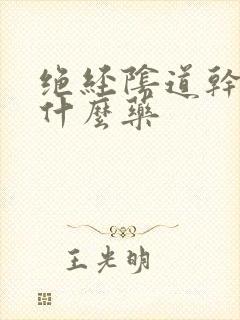 绝经陰道幹
什麼藥
王光明